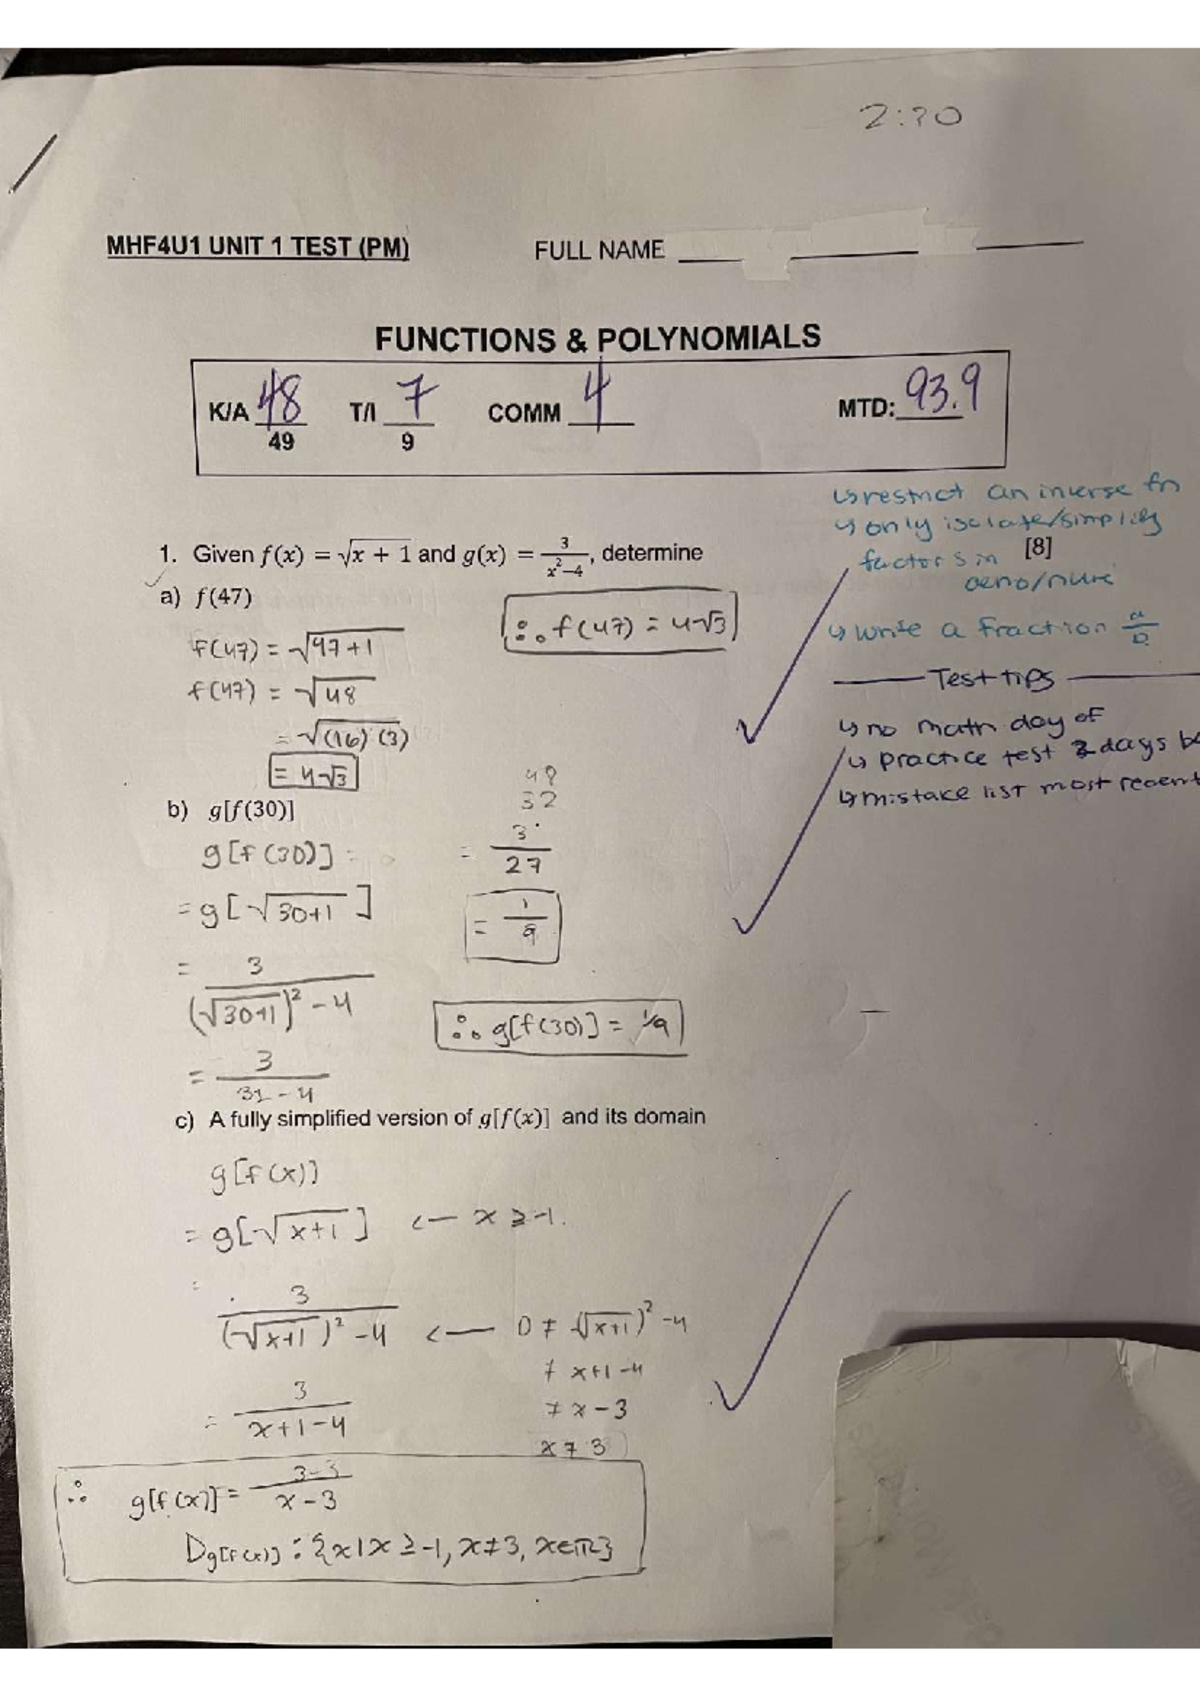 2:30
MHF4U1 UNIT 1 TEST (PM) FULL NAME
FUNCTIONS & POLYNOMIALS
K/A 48 T/I 7 COMM 4 MTD: 93.9
49 9
↳ restrict an inverse fn
↳ only isolate/simplify
factors in
deno/num
↳ write a fraction a/b
Test tips
↳ no math day of
↳ practice test 2 days be
↳ mistake list most recent
1. Given f(x) = √x + 1 and g(x) = 3/(x²−4), determine [8]
a) f(47)
f(47) = √47+1
f(47) = √48
= √(16)(3)
= 4√3
∴ f(47) = 4√3
b) g[f(30)]
g[f(30)] =
= g[√30+1]
= 3/((√30+1)² − 4)
= 3/(31 − 4)
48
32
= 3/27
= 1/9
∴ g[f(30)] = 1/9
c) A fully simplified version of g[f(x)] and its domain
g[f(x)]
= g[√x+1] ← x ≥ -1.
= 3/((√x+1)² − 4) ← 0 ≠ (√x+1)² − 4
≠ x+1−4
= 3/(x+1−4) ≠ x − 3
x ≠ 3
∴ g[f(x)] = 3/(x − 3)
Dg[f(x)] : {x|x ≥ -1, x≠3, x∈ℝ}